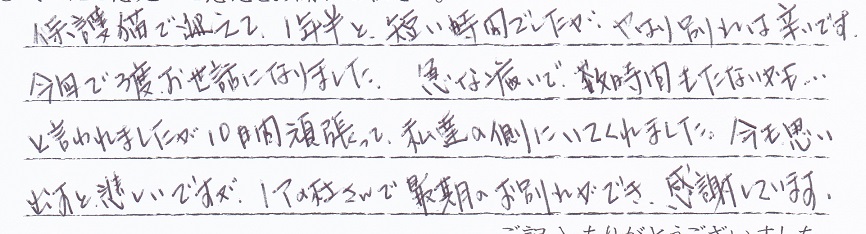 保護猫で迎えて、1年半と、短い時間でしたが、やはり別れは辛いです。
今回で3度、お世話になりました。 急な病いで、数時間もたないかも…
と言われましたが10日間頑張って、私達の側にいてくれました。今も思い
出すと悲しいですが、さんで最期のお別れができ、感謝しています。
ご記入ありがとうございました